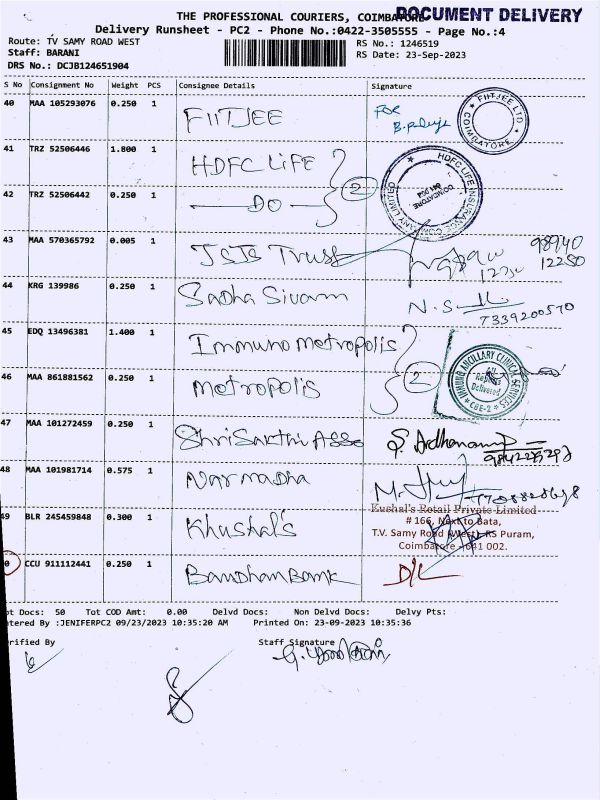 THE PROFESSIONAL COURIERS, COIMBATORE
DOCUMENT DELIVERY
Delivery Runsheet - PC2 - Phone No.:0422-3505555 - Page No.:4
Route: TV SAMY ROAD WEST
RS No.: 1246519
Staff: BARANI
RS Date: 23-Sep-2023
DRS No.: DCJB124651904
S No Consignment No Weight PCS Consignee Details Signature
40 MAA 105293076 0.250 1 FIITJEE For
FIITJEE LTD COIMBATORE
41 TRZ 52506446 1.800 1 HDFC LiFE
2
HDFC LIFE INSURANCE COMPANY LIMITED
COIMBATORE
42 TRZ 52506442 0.250 1 DO
43 MAA 570365792 0.005 1 Trust 98940
12250
44 KRG 139986 0.250 1 Sadha Sivam N.S
7339200570
45 EDQ 13496381 1.400 1 Immuno metropolis
2
46 MAA 861881562 0.250 1 metropolis
ANCILLARY CLINICAL SERVICES
All Reports Delivered
CBE-2
47 MAA 101272459 0.250 1 Shri Sakthi Asso
48 MAA 101981714 0.575 1 Narmadha
Kushal's Retail Private Limited
49 BLR 245459848 0.300 1 Khushal's
# 166, Next to Bata,
T.V. Samy Road (West), RS Puram,
Coimbatore - 641 002.
0 CCU 911112441 0.250 1 Bandhan Bank D/L
Docs: 50 Tot COD Amt: 0.00 Delvd Docs: Non Delvd Docs: Delvy Pts:
tered By :JENIFERPC2 09/23/2023 10:35:20 AM Printed On: 23-09-2023 10:35:36
rified By Staff Signature